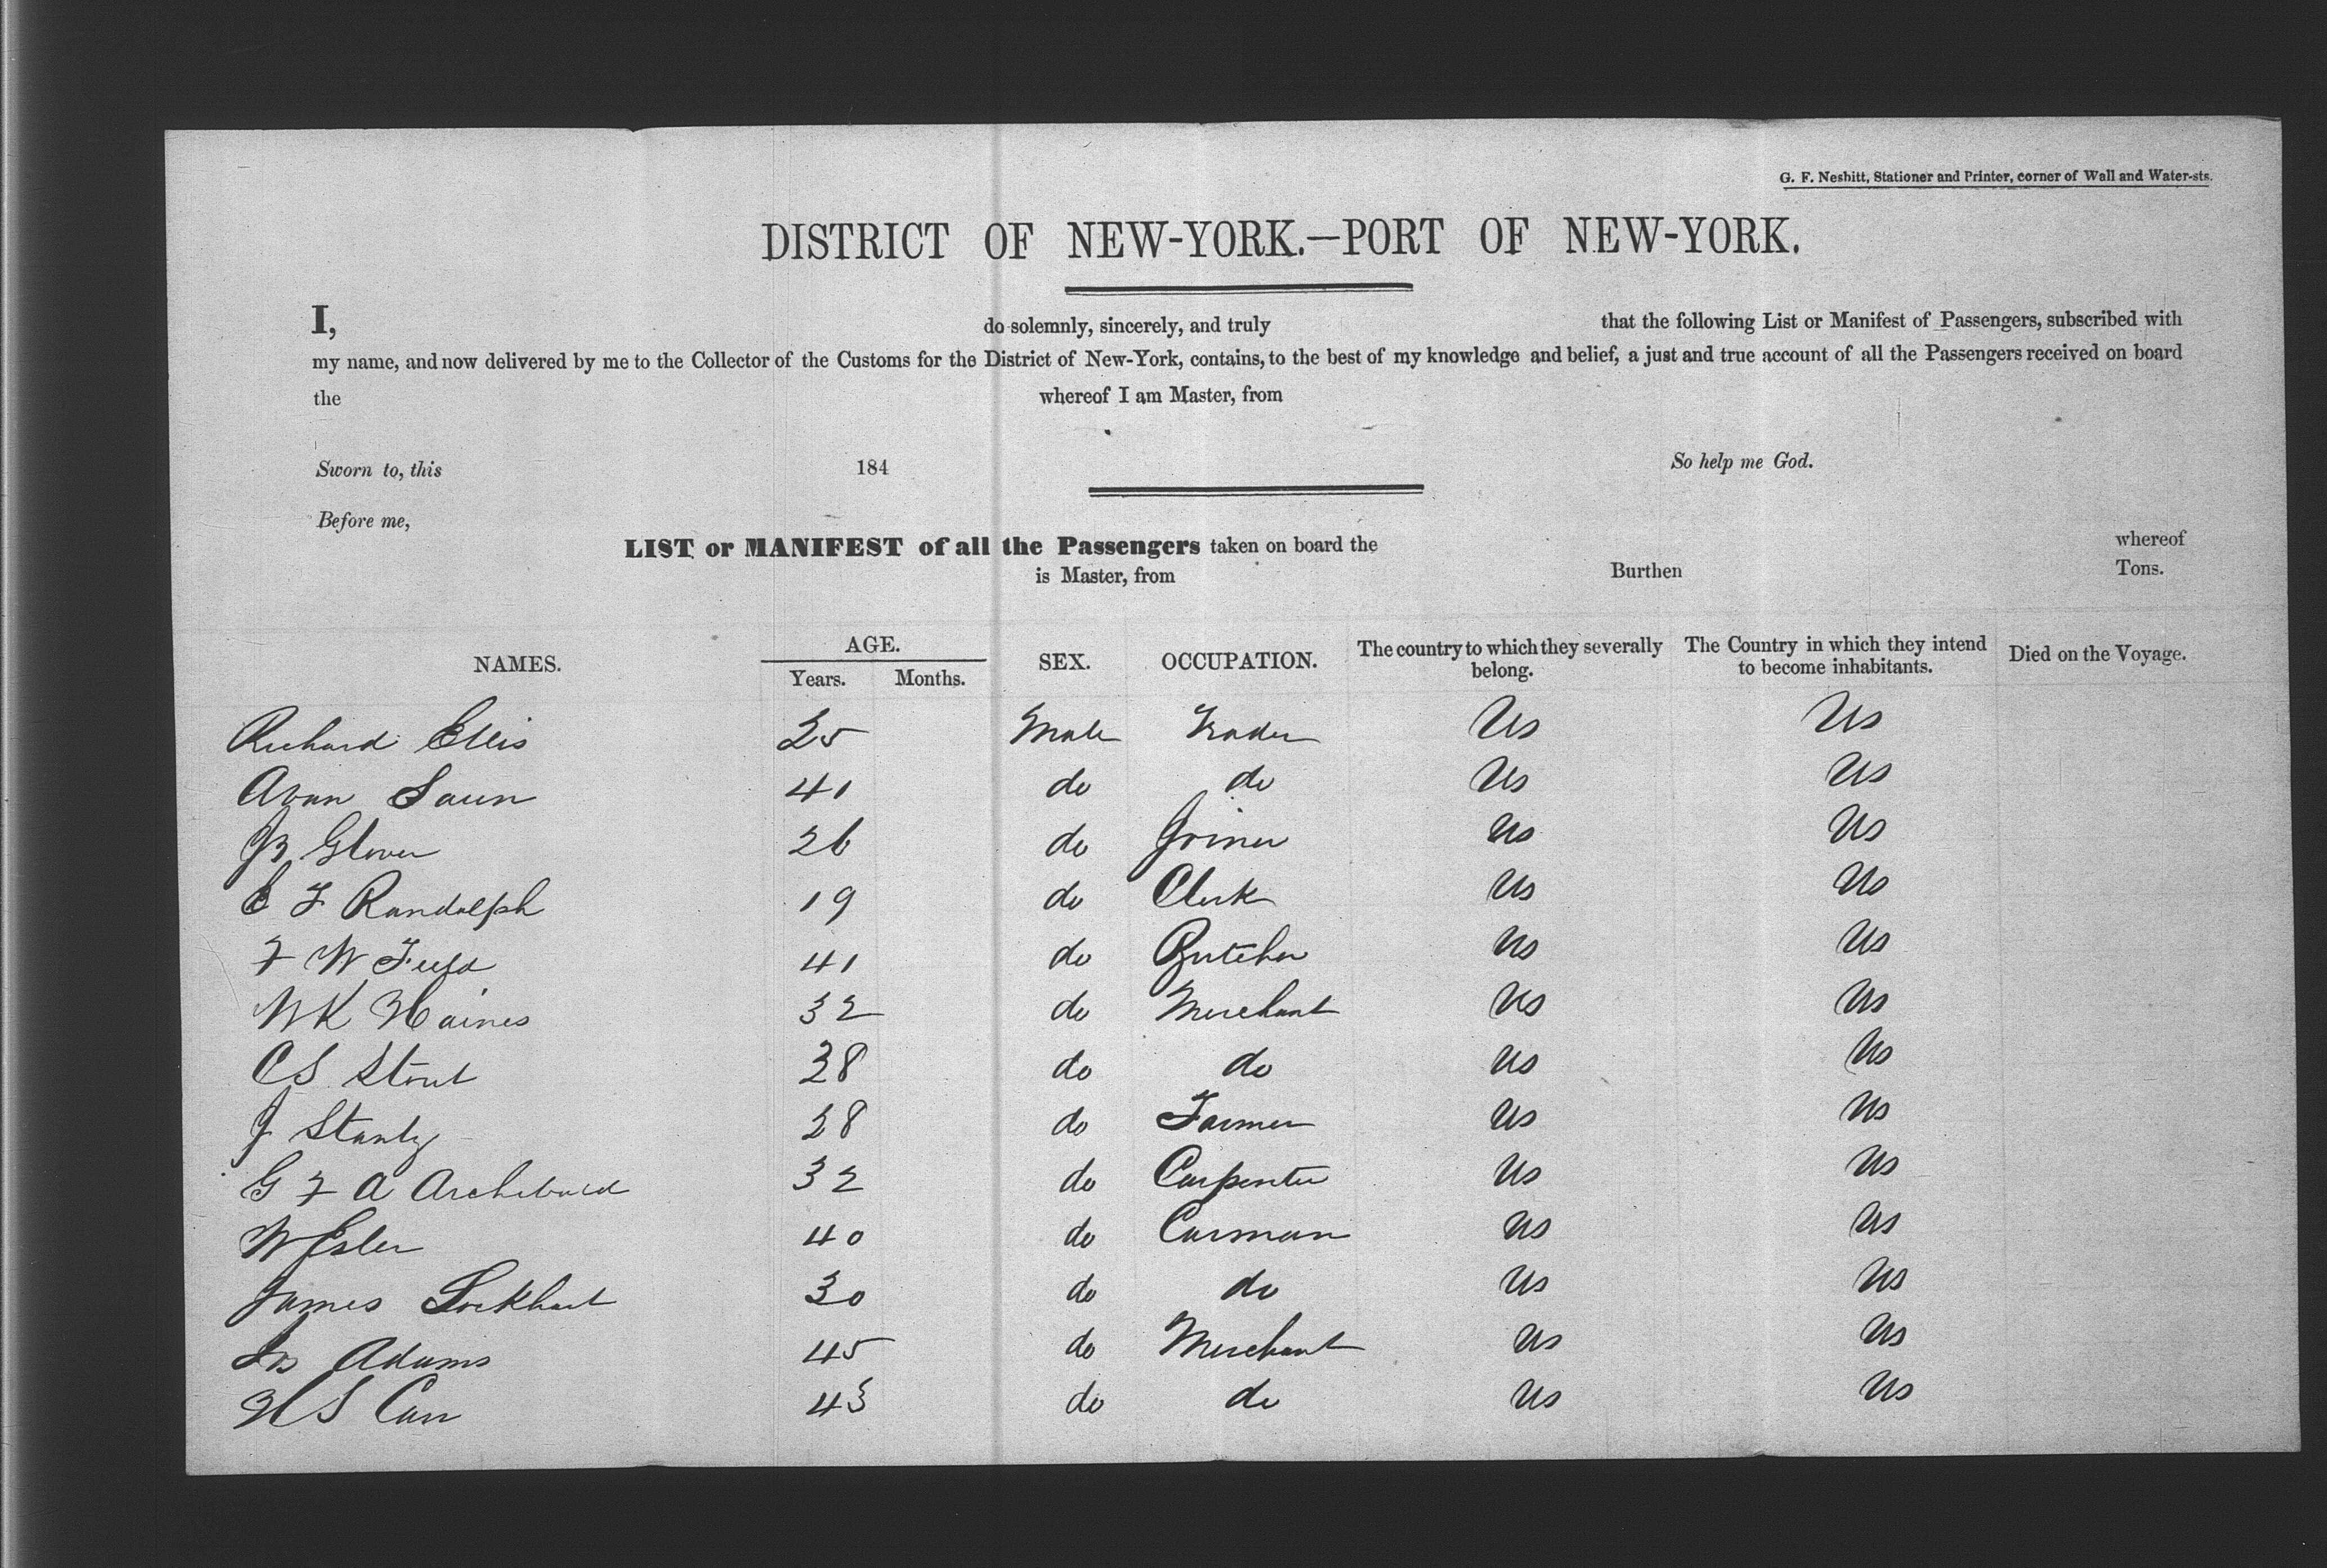 G. F. Nesbitt, Stationer and Printer, corner of Wall and Water-sts.
DISTRICT OF NEW-YORK.—PORT OF NEW-YORK.
I, do solemnly, sincerely, and truly that the following List or Manifest of Passengers, subscribed with
my name, and now delivered by me to the Collector of the Customs for the District of New-York, contains, to the best of my knowledge and belief, a just and true account of all the Passengers received on board
the whereof I am Master, from
Sworn to, this 184 So help me God.
Before me,
LIST or MANIFEST of all the Passengers taken on board the whereof
is Master, from Burthen Tons.
NAMES. AGE. Years. Months. SEX. OCCUPATION. The country to which they severally belong. The Country in which they intend to become inhabitants. Died on the Voyage.
Richard Ellis 25 Male Trader Us Us
41 do do Us Us
Glover 26 do Us Us
E F Randolph 19 do Clerk Us Us
F W 41 do Butcher Us Us
W K Haines 32 do Merchant Us Us
C S Stout 38 do do Us Us
J 28 do Farmer Us Us
G F A Archibald 32 do Carpenter Us Us
W Esler 40 do Carman Us Us
James Lockhart 30 do do Us Us
Adams 45 do Merchant Us Us
H S Carr 43 do do Us Us